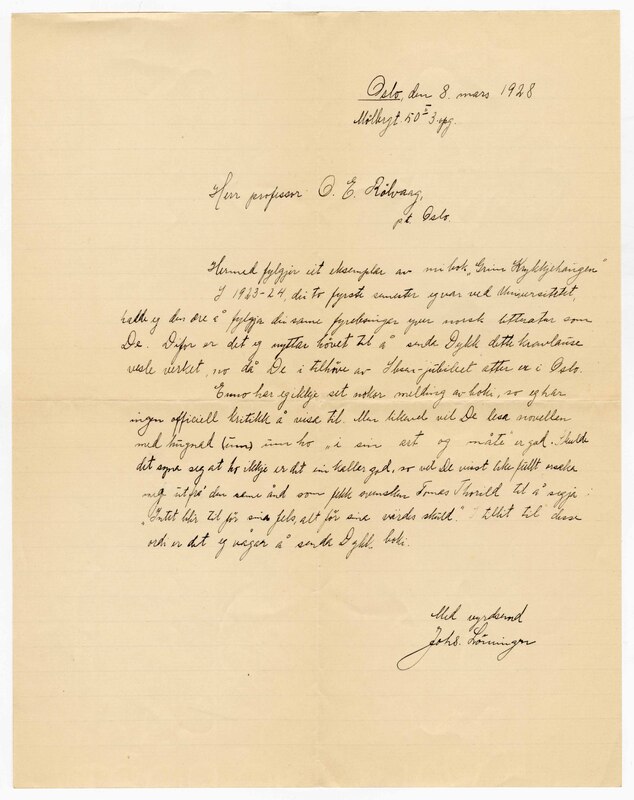 Oslo, den 8. mars 1928
Møllergt. 50 I 3. opg.
Herr professor O. E. Rölvaag,
pt. Oslo.
Hermed fylgjer eit eksemplar av mi bok „Grim Krykkjehaugen”
I 1923-24, dei to fyrste semester eg var ved Universitetet,
hadde eg den ære å fylgja dei same fyrelesninger yver norsk litteratur som
De. Difor er det eg nyttar høvet til å senda Dykk dette kravlause
vesle verket, no då De i tilhöve av Ibsen-jubileet atter er i Oslo.
Enno har eg ikkje set nokor melding av boki, so eg har
ingen officiell kritikk å visa til. Men likevel vil De lesa novellen
med hugnad um ho „i sin art og måte” er god. Skulde
det syna seg at ho ikkje er det ein kallar god, so vil De visst like fullt
meg utfrå den same ånd som fekk svensken Tomas Thorild til å segja:
„Intet blir til för sina fels, alt för sina värdes skuld.” I tillit til disse
ord er det eg vågar å senda Dykk boki.
Med vyrdsemd
Johs.